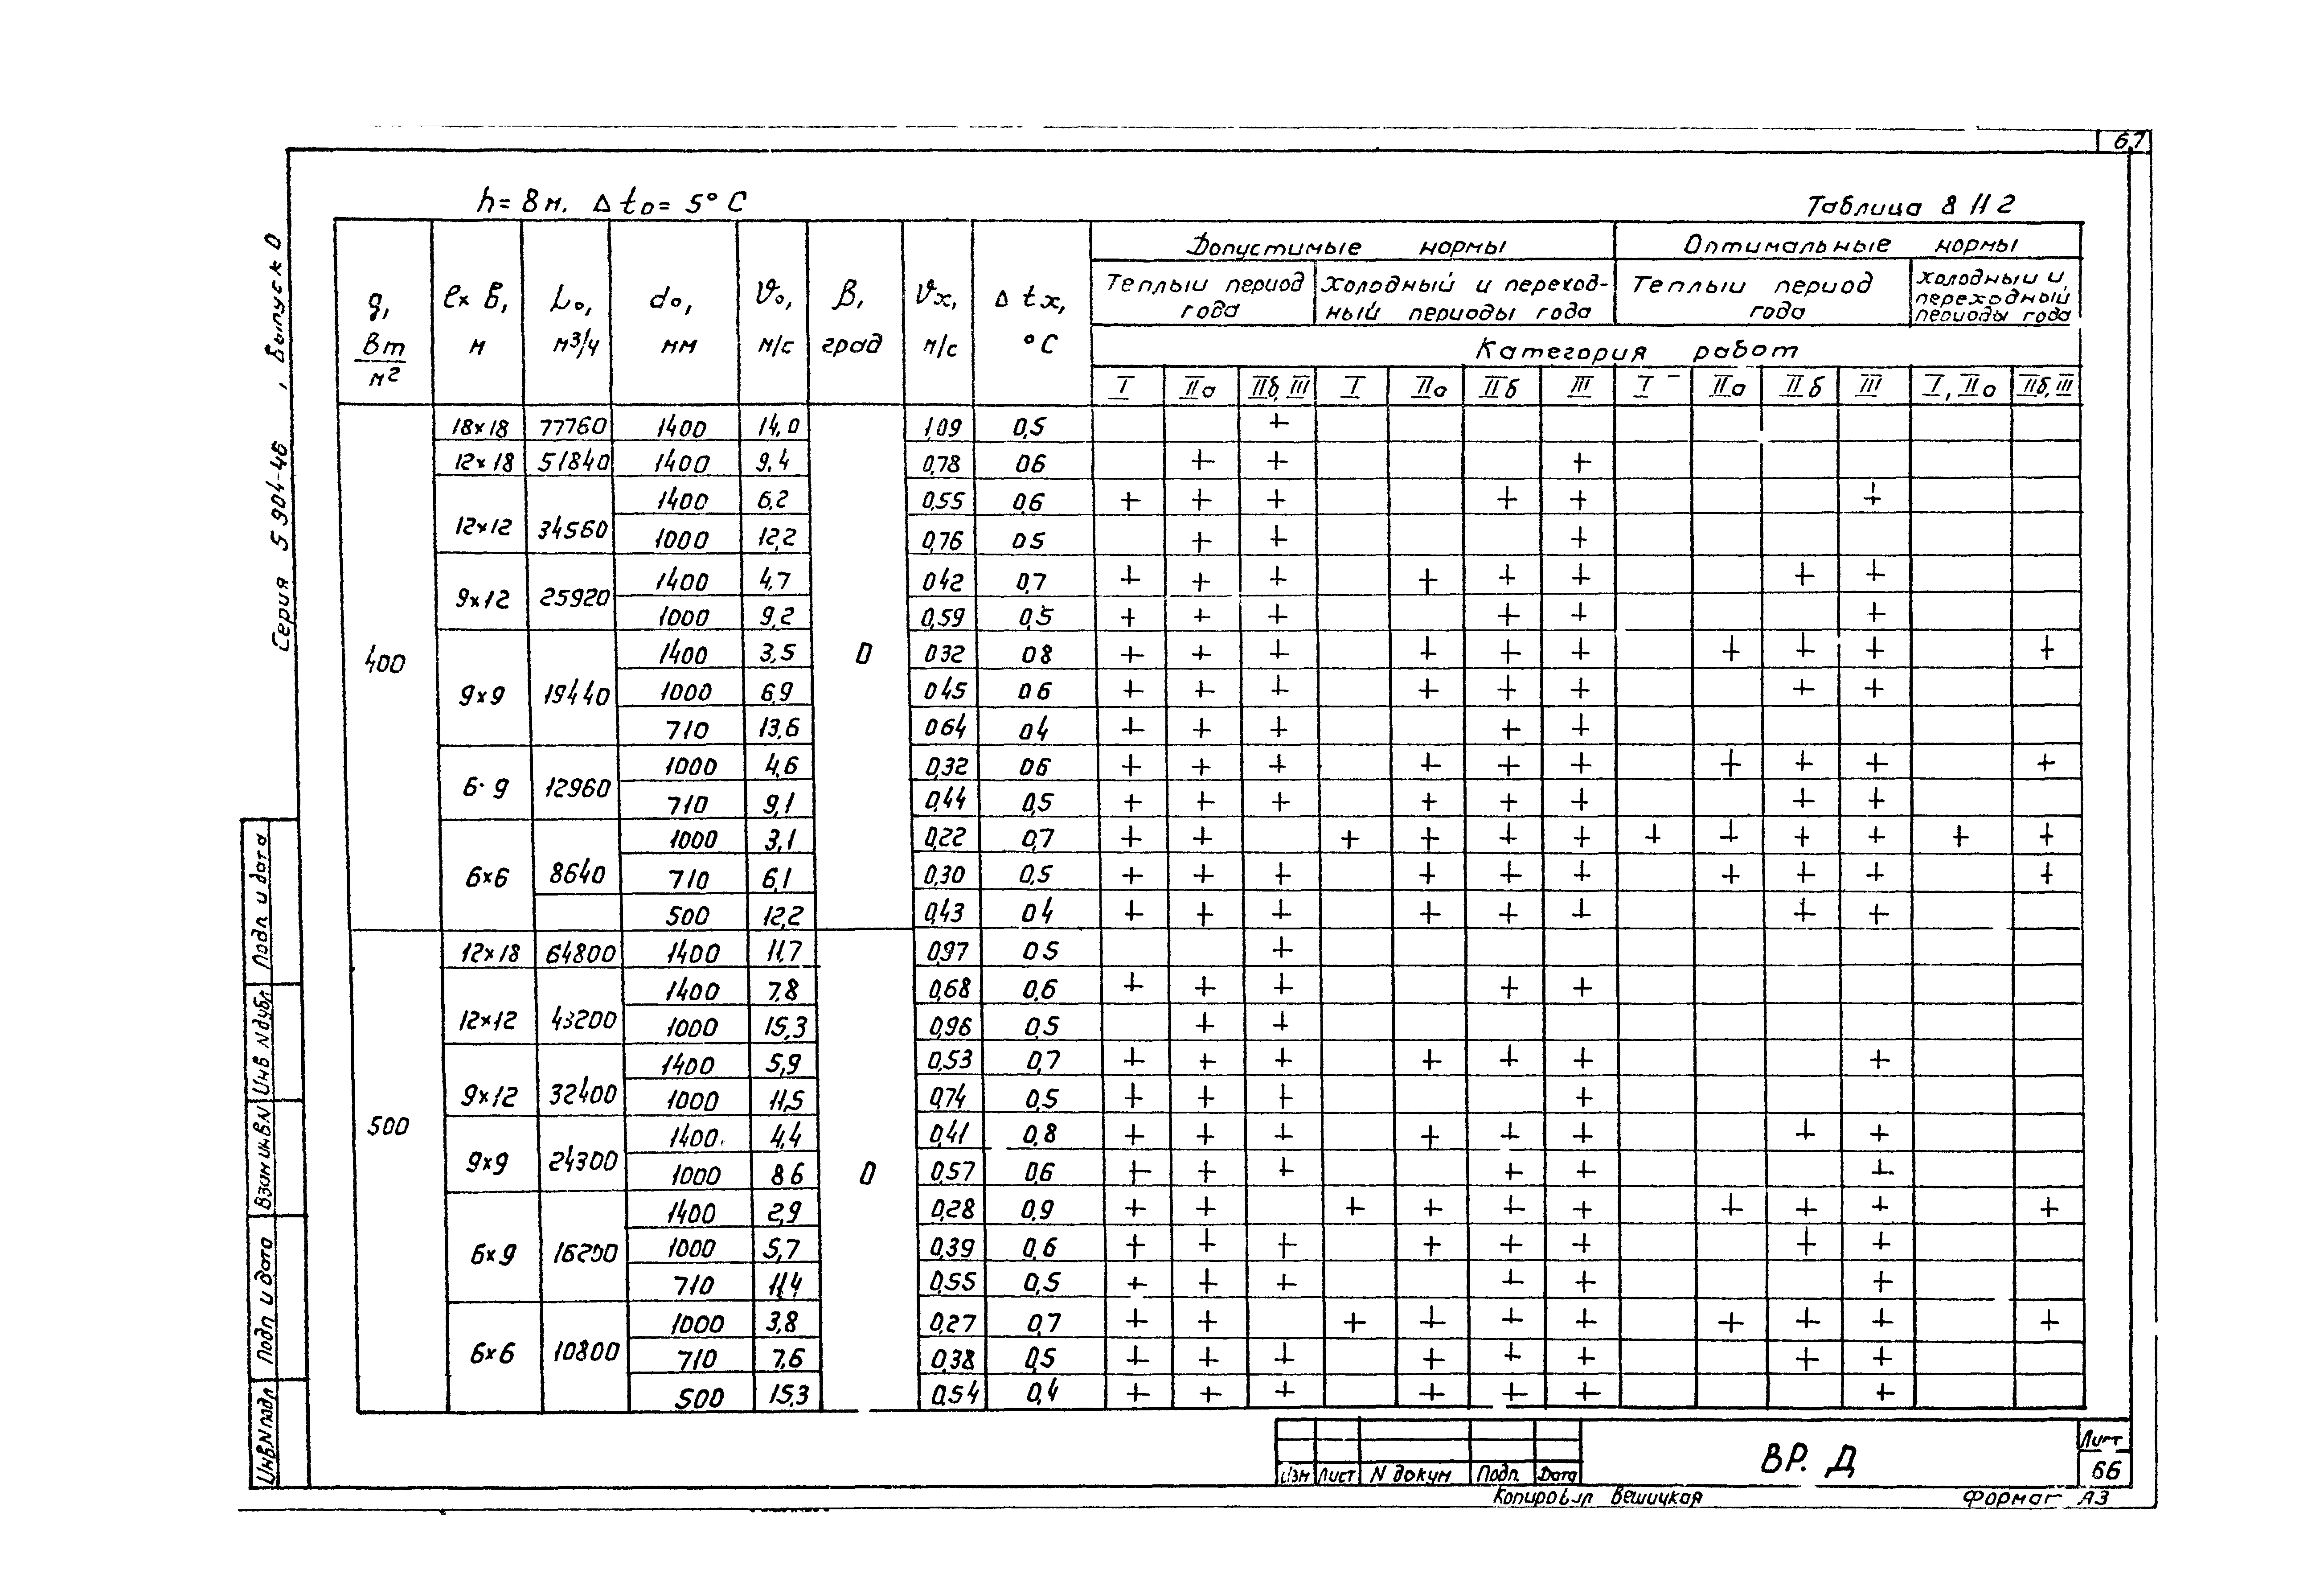 67
h= 8 м. Δ tо= 5° C
Таблица 8 11 2
Серия 5 904-46 , Выпуск 0
q, Вт/м² | ℓ× в, м | Lо, м³/ч | dо, мм | υо, м/с | β, град | υх, м/с | Δ tх, °C | Допустимые нормы | Оптимальные нормы
Теплый период года | Холодный и переходный периоды года | Теплый период года | Холодный и переходный периоды года
Категория работ
I | IIа | IIб, III | I | IIа | IIб | III | I | IIа | IIб | III | I, IIа | IIб, III
400 | 18×18 | 77760 | 1400 | 14,0 | 0 | 1,09 | 0,5 | | | + | | | | | | | | | |
12×18 | 51840 | 1400 | 9,4 | 0,78 | 0,6 | | + | + | | | | + | | | | | |
12×12 | 34560 | 1400 | 6,2 | 0,55 | 0,6 | + | + | + | | | + | + | | | | + | |
1000 | 12,2 | 0,76 | 0,5 | | + | + | | | | + | | | | | |
9×12 | 25920 | 1400 | 4,7 | 0,42 | 0,7 | + | + | + | | + | + | + | | | + | + | |
1000 | 9,2 | 0,59 | 0,5 | + | + | + | | | + | + | | | | + | |
9×9 | 19440 | 1400 | 3,5 | 0,32 | 0,8 | + | + | + | | + | + | + | | + | + | + | | +
1000 | 6,9 | 0,45 | 0,6 | + | + | + | | + | + | + | | | + | + | |
710 | 13,6 | 0,64 | 0,4 | + | + | + | | | + | + | | | | | |
6×9 | 12960 | 1000 | 4,6 | 0,32 | 0,6 | + | + | + | | + | + | + | | + | + | + | | +
710 | 9,1 | 0,44 | 0,5 | + | + | + | | + | + | + | | | + | + | |
6×6 | 8640 | 1000 | 3,1 | 0,22 | 0,7 | + | + | | + | + | + | + | + | + | + | + | + | +
710 | 6,1 | 0,30 | 0,5 | + | + | + | | + | + | + | | + | + | + | | +
500 | 12,2 | 0,43 | 0,4 | + | + | + | | + | + | + | | | + | + | |
500 | 12×18 | 64800 | 1400 | 11,7 | 0 | 0,97 | 0,5 | | | + | | | | | | | | | |
12×12 | 43200 | 1400 | 7,8 | 0,68 | 0,6 | + | + | + | | | + | + | | | | | |
1000 | 15,3 | 0,96 | 0,5 | | + | + | | | | | | | | | |
9×12 | 32400 | 1400 | 5,9 | 0,53 | 0,7 | + | + | + | | + | + | + | | | | + | |
1000 | 11,5 | 0,74 | 0,5 | + | + | + | | | | + | | | | | |
9×9 | 24300 | 1400 | 4,4 | 0,41 | 0,8 | + | + | + | | + | + | + | | | + | + | |
1000 | 8,6 | 0,57 | 0,6 | + | + | + | | | + | + | | | | + | |
6×9 | 16200 | 1400 | 2,9 | 0,28 | 0,9 | + | + | | + | + | + | + | | + | + | + | | +
1000 | 5,7 | 0,39 | 0,6 | + | + | + | | + | + | + | | | + | + | |
710 | 11,4 | 0,55 | 0,5 | + | + | + | | | + | + | | | | + | |
6×6 | 10800 | 1000 | 3,8 | 0,27 | 0,7 | + | + | | + | + | + | + | | + | + | + | | +
710 | 7,6 | 0,38 | 0,5 | + | + | + | | + | + | + | | | + | + | |
500 | 15,3 | 0,54 | 0,4 | + | + | + | | + | + | + | | | | + | |
Подп и дата
Инв N дубл
Взам инв.N
Подп и дата
Инв.N подл
Изм Лист N докум Подп. Дата
ВР. Д
Лист
66
Копировал Вешицкая
Формат А3